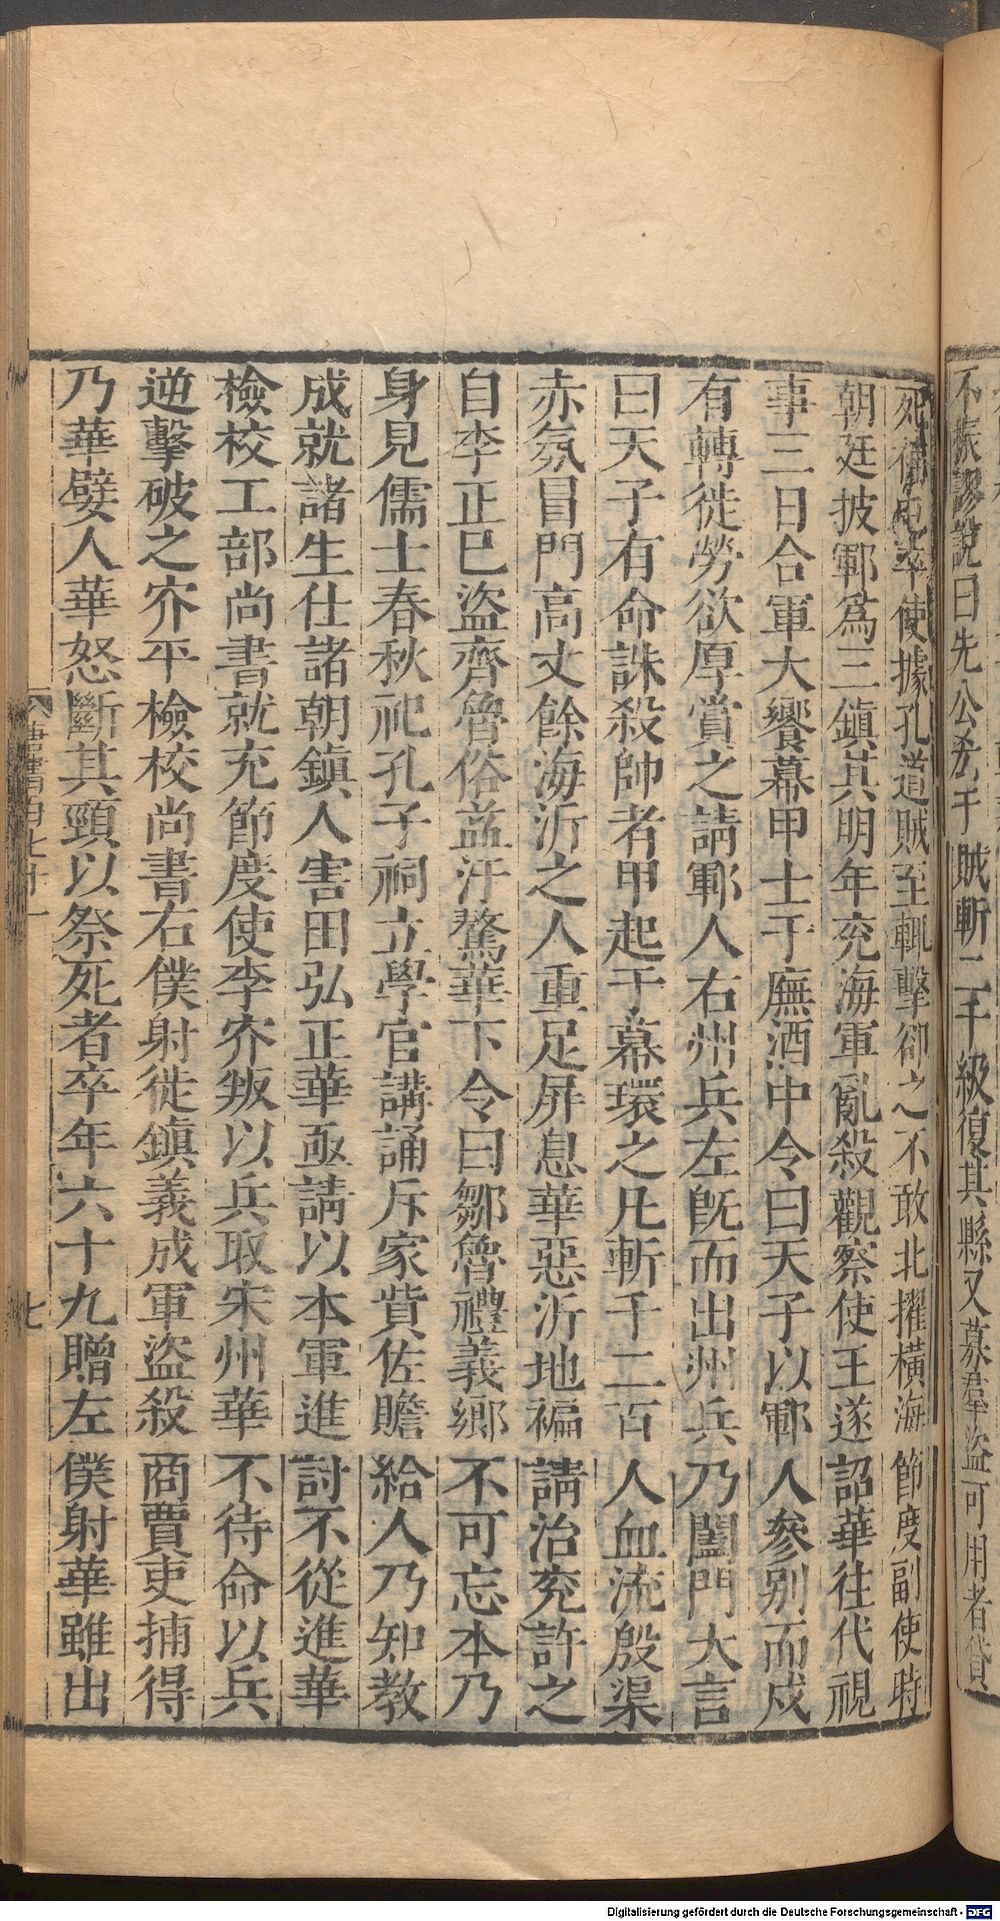 不振謬說曰先公
于賊斬二千級復其縣又募羣盜可用者貸
死補屯卒使據孔道賊至輒擊卻之不敢北擢橫海節度副使時
朝廷披鄆爲三鎮其明年兗海軍亂殺觀察使王遂詔華往代視
事三日合軍大饗幕甲士于廡酒中令曰天子以鄆人參別而戍
有轉徙勞欲厚賞之請鄆人右州兵左旣而出州兵乃闔門大言
曰天子有命誅殺帥者甲起于幕環之凡斬千二百人血流殷渠
赤氛冒門高丈餘海沂之人重足屏息華惡沂地褊請治兗許之
自李正巳盜齊魯俗益汙驁華下令曰鄒魯禮義鄉不可忘本乃
身見儒士春秋祀孔子祠立學官講誦斥家貲佐贍給人乃知教
成就諸生仕諸朝鎮人害田弘正華亟請以本軍進討不從進華
檢校工部尚書就充節度使李㝏叛以兵取宋州華不待命以兵
逆擊破之㝏平檢校尚書右僕射徙鎮義成軍盜殺商賈吏捕得
乃華嬖人華怒斷其頸以祭死者卒年六十九贈左僕射華雖出
七
Digitalisierung gefördert durch die Deutsche Forschungsgemeinschaft - DFG